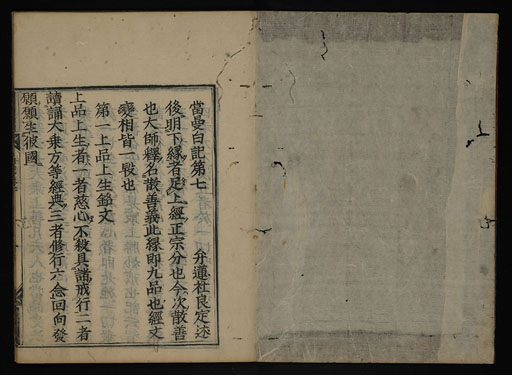 當曼白記第七
弁蓮社良定述
後明下緣者足上經正宗分也今次散善
也大師釋名散善義此緣即九品也經文
變相皆一轍也
第一上品上生銘文
上品上生者一者慈心不殺具諸戒行二者
讀誦大乘方等經典三者修行六念回向發
願願生彼國